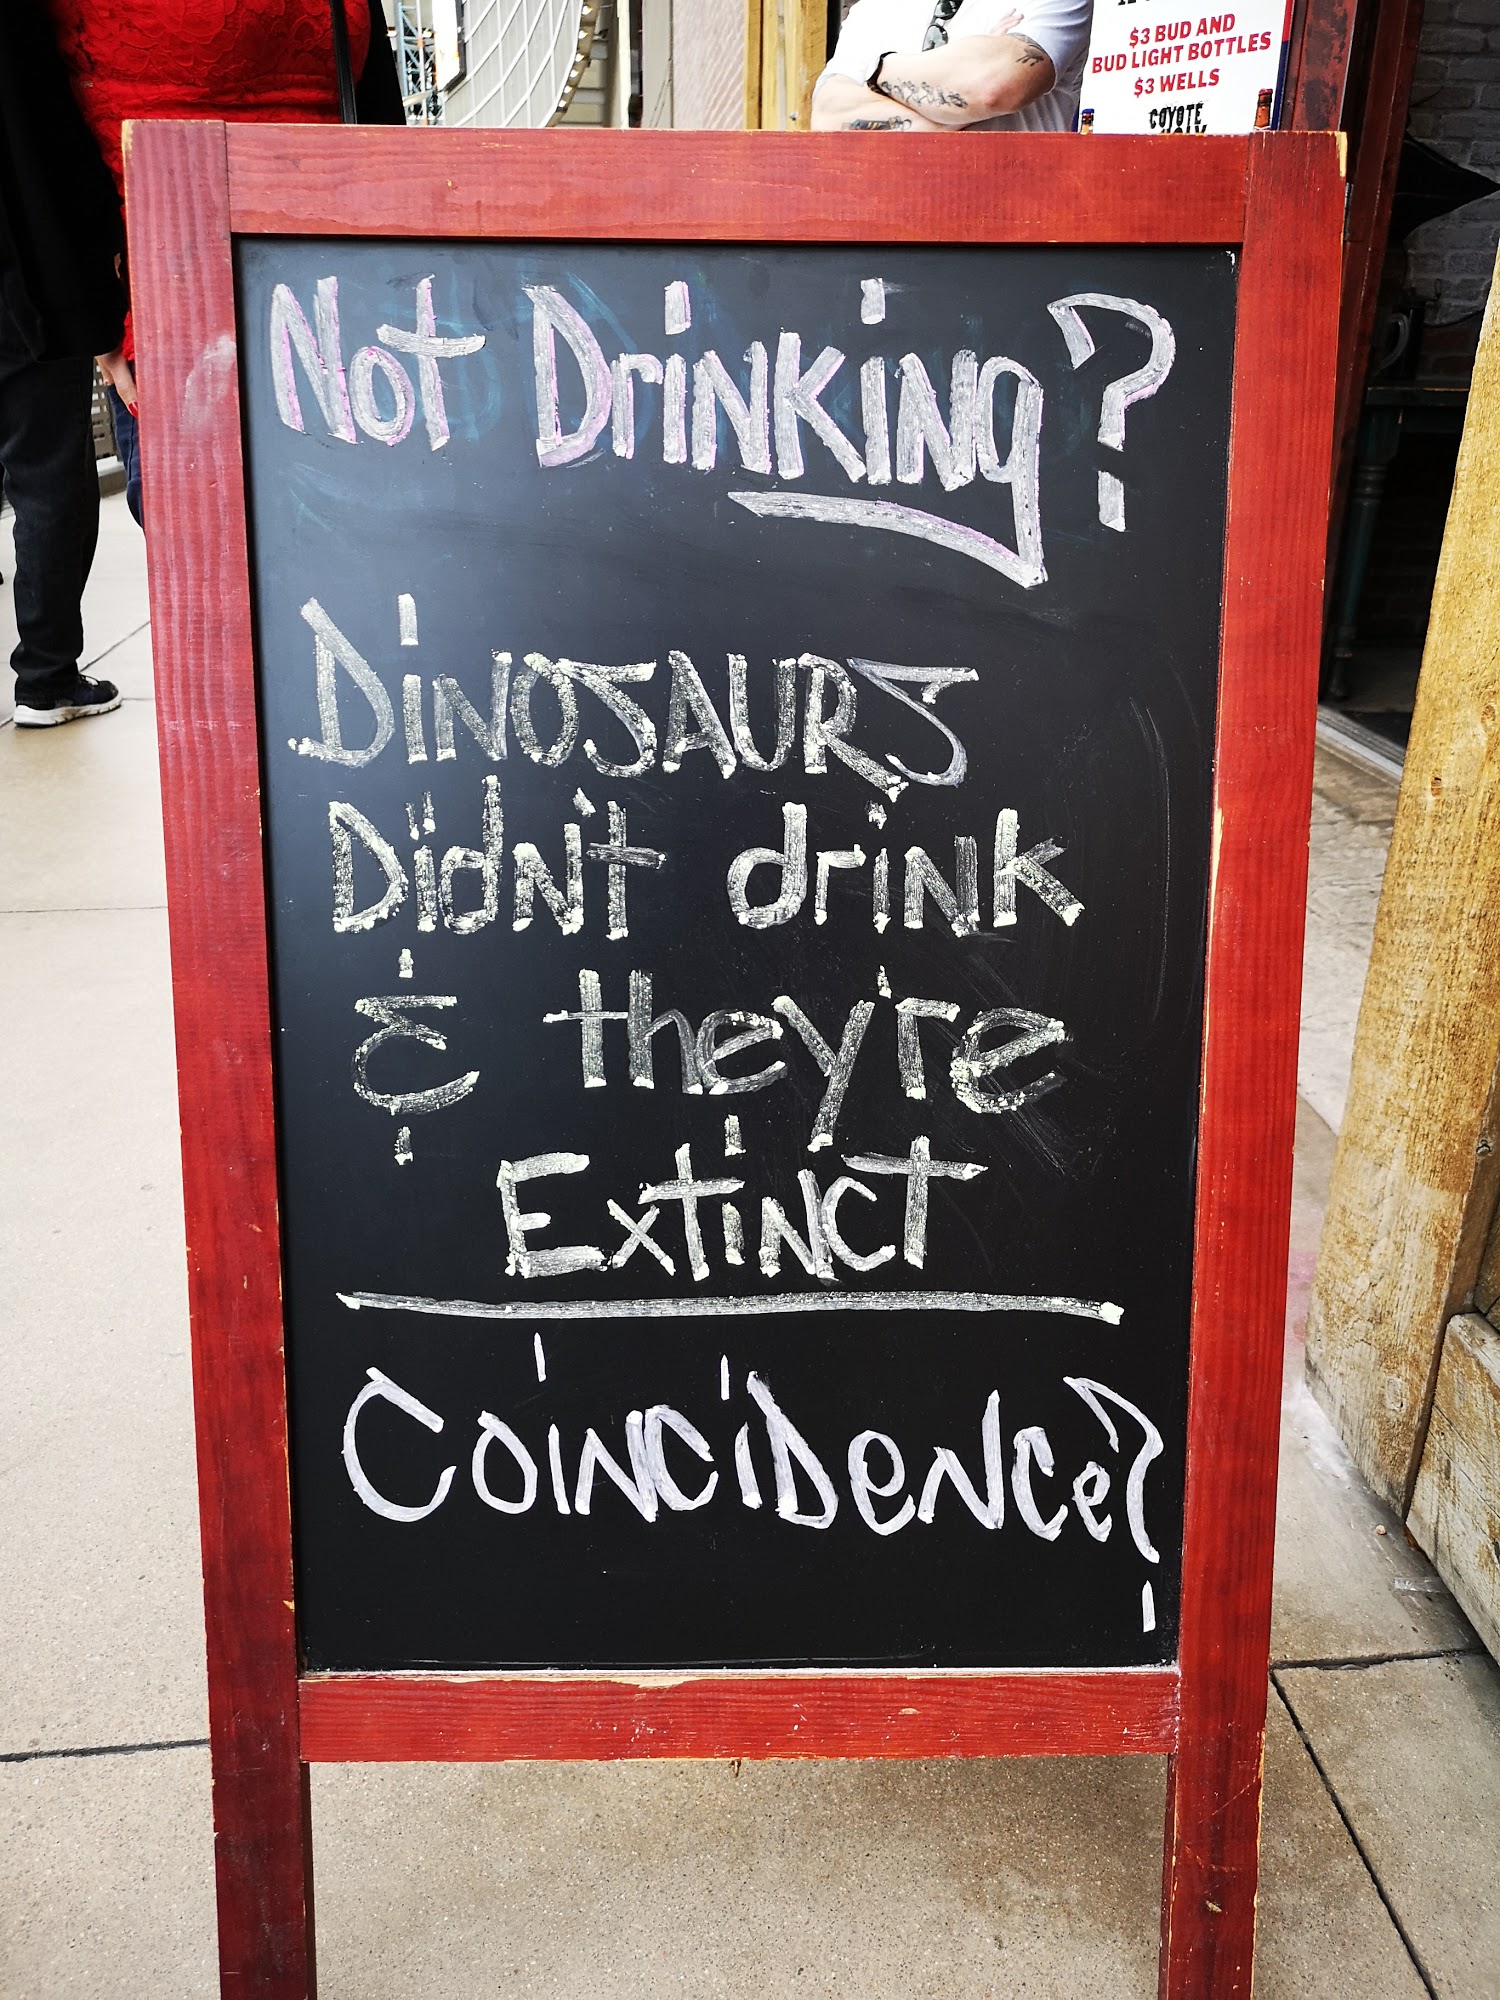 $3 BUD AND
BUD LIGHT BOTTLES
$3 WELLS
COYOTE
Not Drinking?
DINOSAURS
Didn't drink
& they're
EXTINCT
COINCIDENCe?